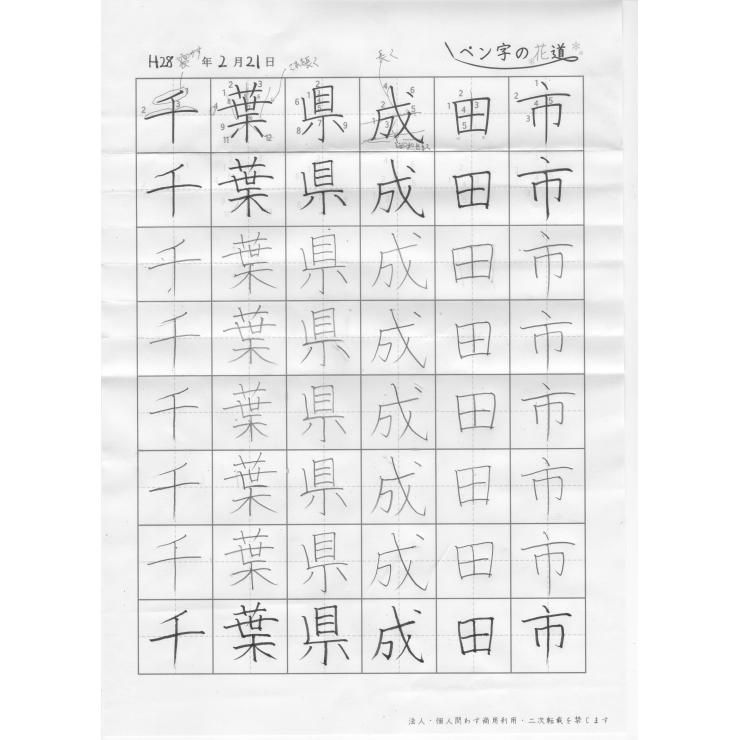 H28年2月21日
ペン字の花道
長く
千葉県成田市
千葉県成田市
千葉県成田市
千葉県成田市
千葉県成田市
千葉県成田市
千葉県成田市
千葉県成田市
法人・個人問わず商用利用・二次転載を禁じます